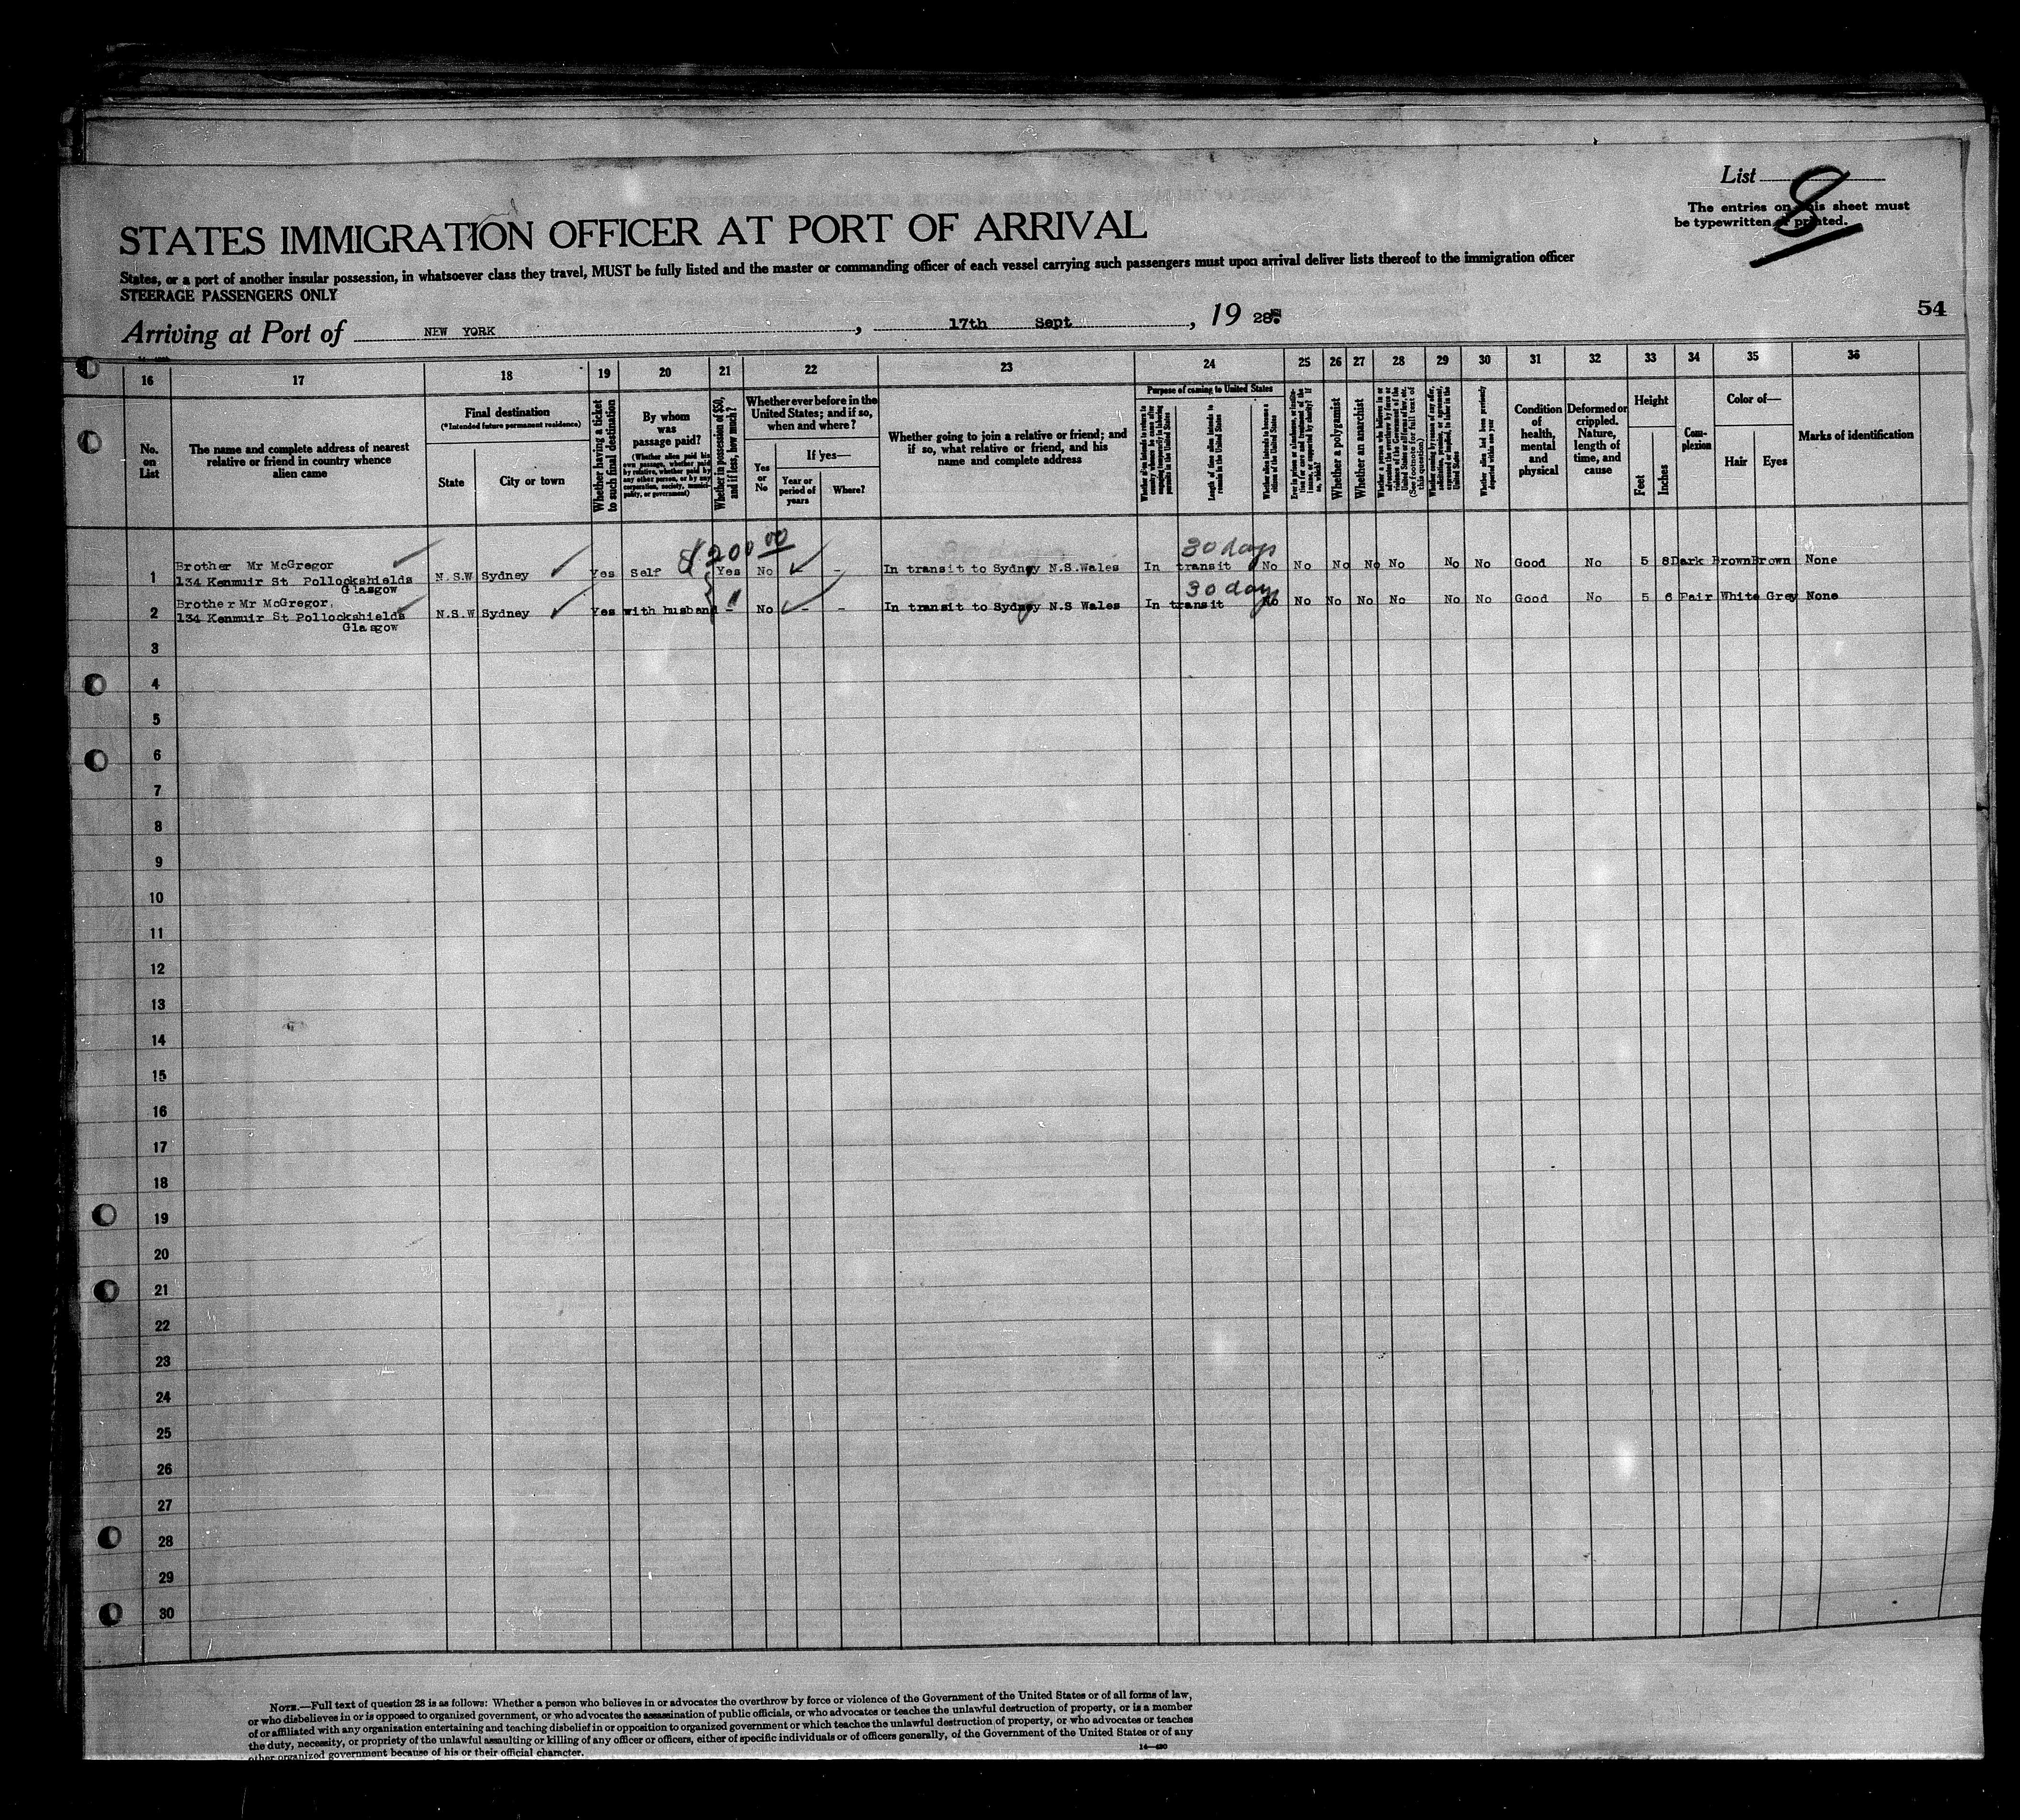 List 8
The entries on this sheet must
be typewritten or printed.
STATES IMMIGRATION OFFICER AT PORT OF ARRIVAL
States, or a port of another insular possession, in whatsoever class they travel, MUST be fully listed and the master or commanding officer of each vessel carrying such passengers must upon arrival deliver lists thereof to the immigration officer
STEERAGE PASSENGERS ONLY
54
Arriving at Port of NEW YORK, 17th Sept, 19 28
16 17 18 19 20 21 22 23 24 25 26 27 28 29 30 31 32 33 34 35 36
No. on List
The name and complete address of nearest relative or friend in country whence alien came
Final destination
(*Intended future permanent residence)
State
City or town
Whether having a ticket to such final destination
By whom was passage paid?
(Whether alien paid his own passage, whether paid by relative, whether paid by any other person, or by any corporation, society, municipality, or government)
Whether in possession of $50, and if less, how much?
Whether ever before in the United States; and if so, when and where?
Yes or No
If yes—
Year or period of years
Where?
Whether going to join a relative or friend; and if so, what relative or friend, and his name and complete address
Purpose of coming to United States
Whether alien intends to return to country whence he came after engaging temporarily in laboring pursuits in the United States
Length of time alien intends to remain in the United States
Whether alien intends to become a citizen of the United States
Ever in prison or almshouse, or institution for care and treatment of the insane, or supported by charity? If so, which?
Whether a polygamist
Whether an anarchist
(See footnote for full text of this question)
Whether coming by reason of any offer, solicitation, promise, or agreement, expressed or implied, to labor in the United States
Whether alien had been previously deported within one year
Condition of health, mental and physical
Deformed or crippled. Nature, length of time, and cause
Height
Feet
Inches
Complexion
Color of—
Hair
Eyes
Marks of identification
$200 00
30 days
1 Brother Mr McGregor
134 Kenmuir St. Pollockshields
Glasgow
N.S.W Sydney Yes Self Yes No - - In transit to Sydney N.S.Wales In transit No No No No No No No Good No 5 8 Dark Brown Brown None
30 days
2 Brother Mr McGregor,
134 Kenmuir St Pollockshields
Glasgow
N.S.W Sydney Yes with husband - No - - In transit to Sydney N.S Wales In transit No No No No No No No Good No 5 6 Fair White Grey None
3
4
5
6
7
8
9
10
11
12
13
14
15
16
17
18
19
20
21
22
23
24
25
26
27
28
29
30
NOTE.—Full text of question 28 is as follows: Whether a person who believes in or advocates the overthrow by force or violence of the Government of the United States or of all forms of law,
or who disbelieves in or is opposed to organized government, or who advocates the assassination of public officials, or who advocates or teaches the unlawful destruction of property, or is a member
of or affiliated with any organization entertaining and teaching disbelief in or opposition to organized government or which teaches the unlawful destruction of property, or who advocates or teaches
the duty, necessity, or propriety of the unlawful assaulting or killing of any officer or officers, either of specific individuals or of officers generally, of the Government of the United States or of any
other organized government because of his or their official character.
14—430